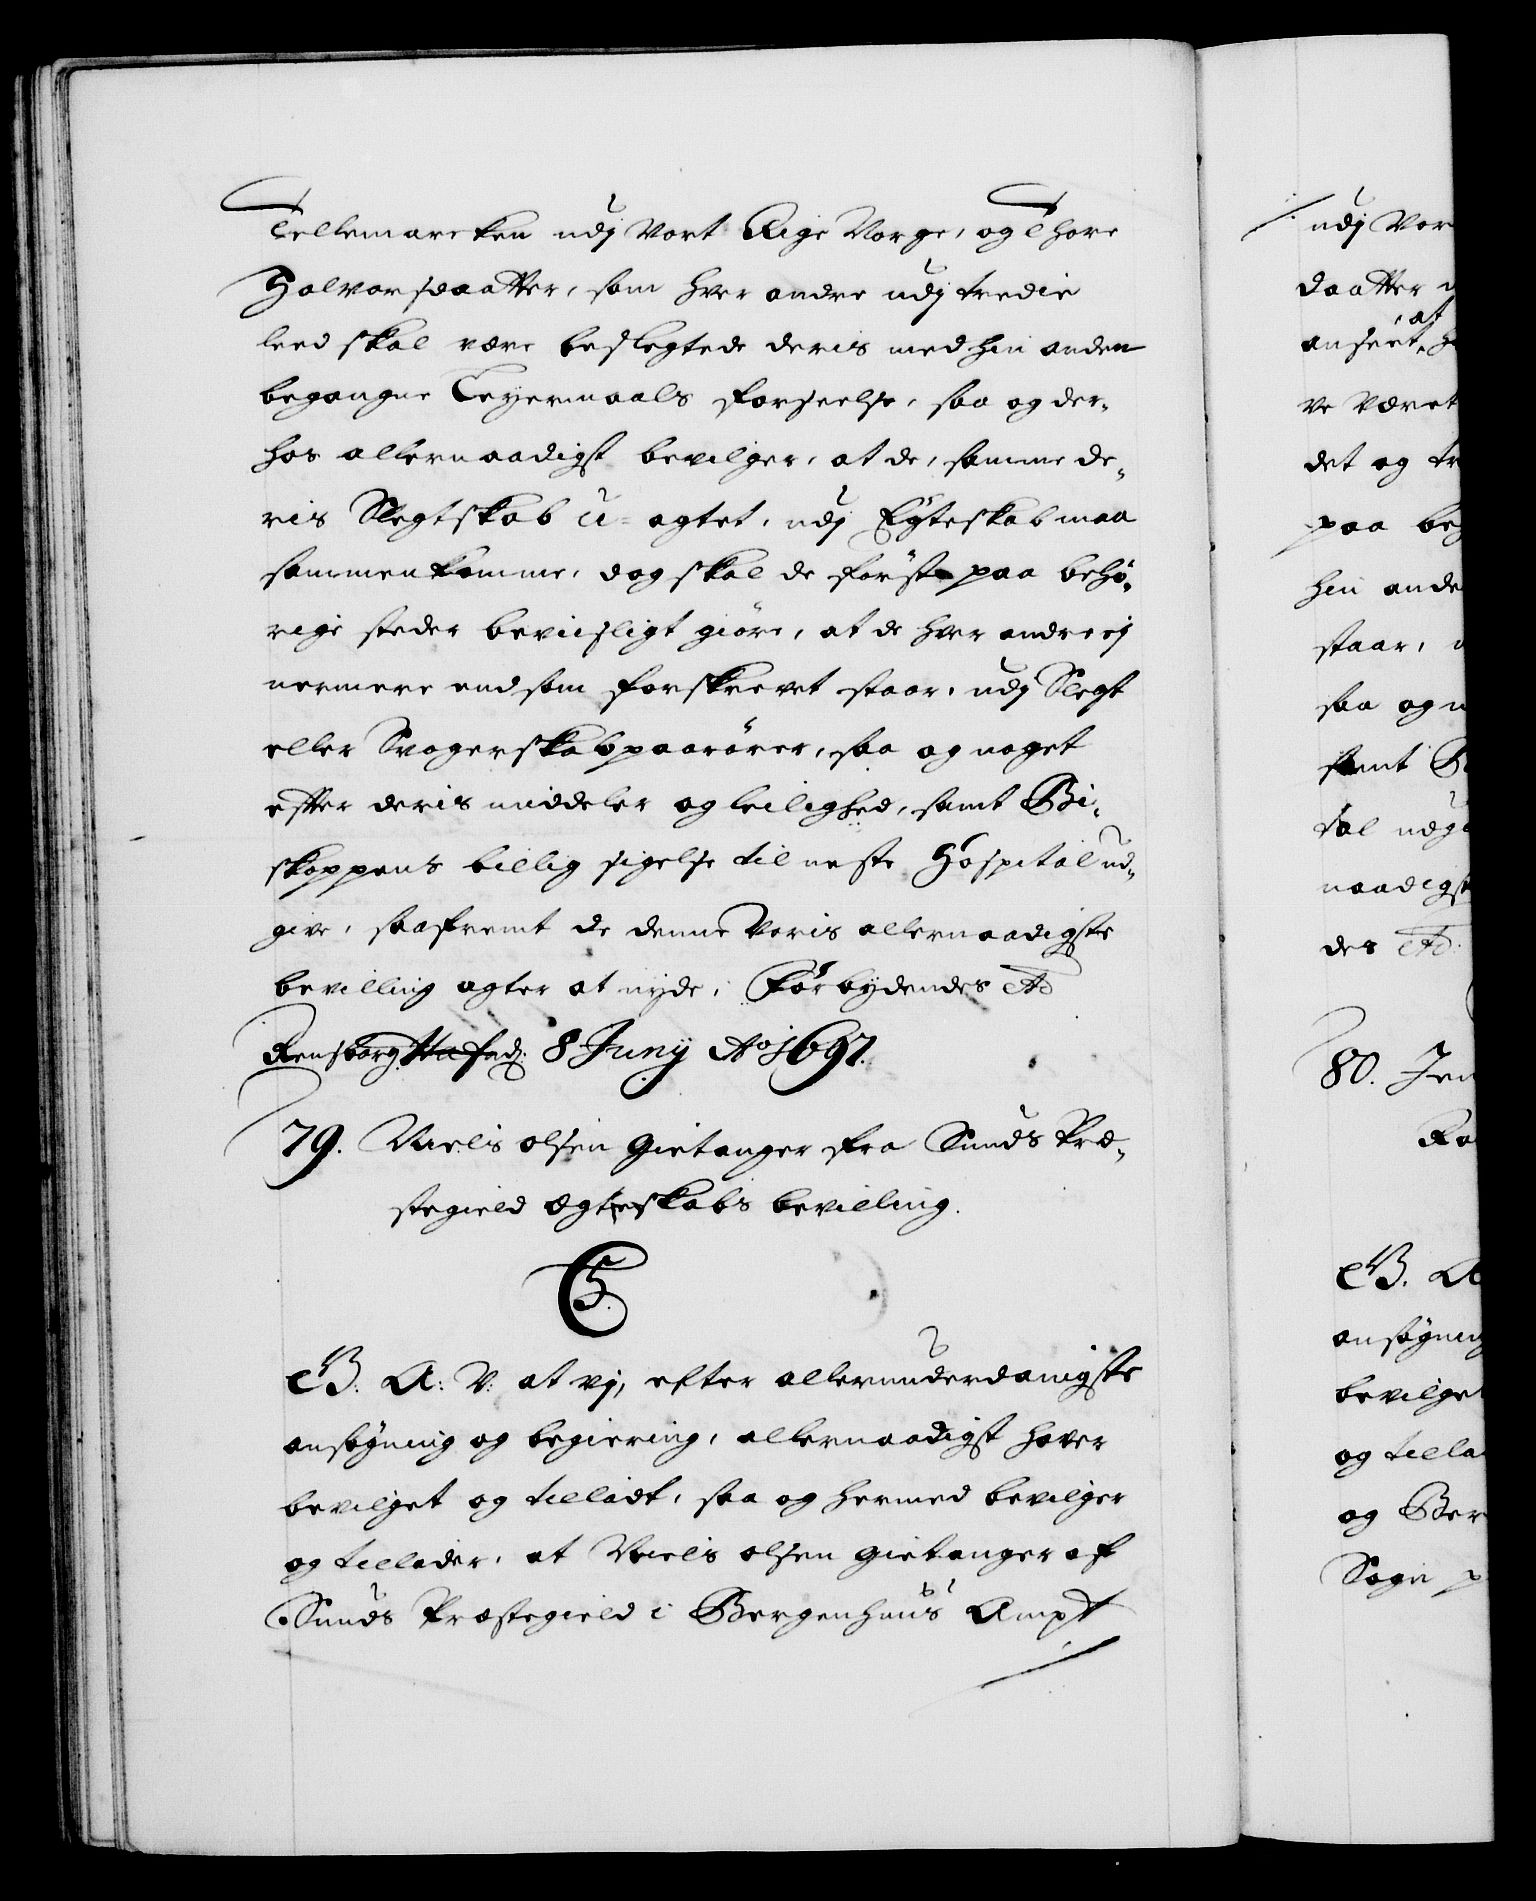 Tellemarcken udj Vort Rige Norge, og Thore
Halvorsdaatter, som hver andre udj tredie
leed skal være beslegtede deris med hin anden
begangne Leyermaals forseelse, saa og der-
hos allernaadigst bevilger, at de, samme de-
ris Slegtskab u-agtet, udj Egteskab maa
sammenkomme, dog skal de först paa behö-
rige steder beviisligt giöre, at de hver andre ej
nermere end som forskrevet staar, udj Slegt
eller Svogerskab paarörer, saa og noget
efter deris middeler og leilighed, samt Bi-
skoppens billig sigelse til neste Hospital ud-
give, saafremt de denne Voris allernaadigste
bevilling agter at nyde, Forbydendes etc
Rensborg Hafnj: 8 Junij Ao 1697.
79. Niels olsen Gietanger fra Sunds Præ-
stegield Ægteskabs bevilling.
C5.
G. A: V: at vj, efter allerunderdanigste
ansøgning og begiering, allernaadigst haver
bevilget og tilladt, saa og hermed bevilger
og tillader, at Niels olsen Gietanger af
Sunds Præstegield i Bergenhuus Ampt
udj Vor
daatter
anseet, at
ve været
det og tr
paa beg
hin ande
staar,
saa og n
samt B
tal udgi
naadigst
des etc.
80. Jen
Ra
G. A
ansøgning
bevilget
og tilla
og Ber
Sogn p